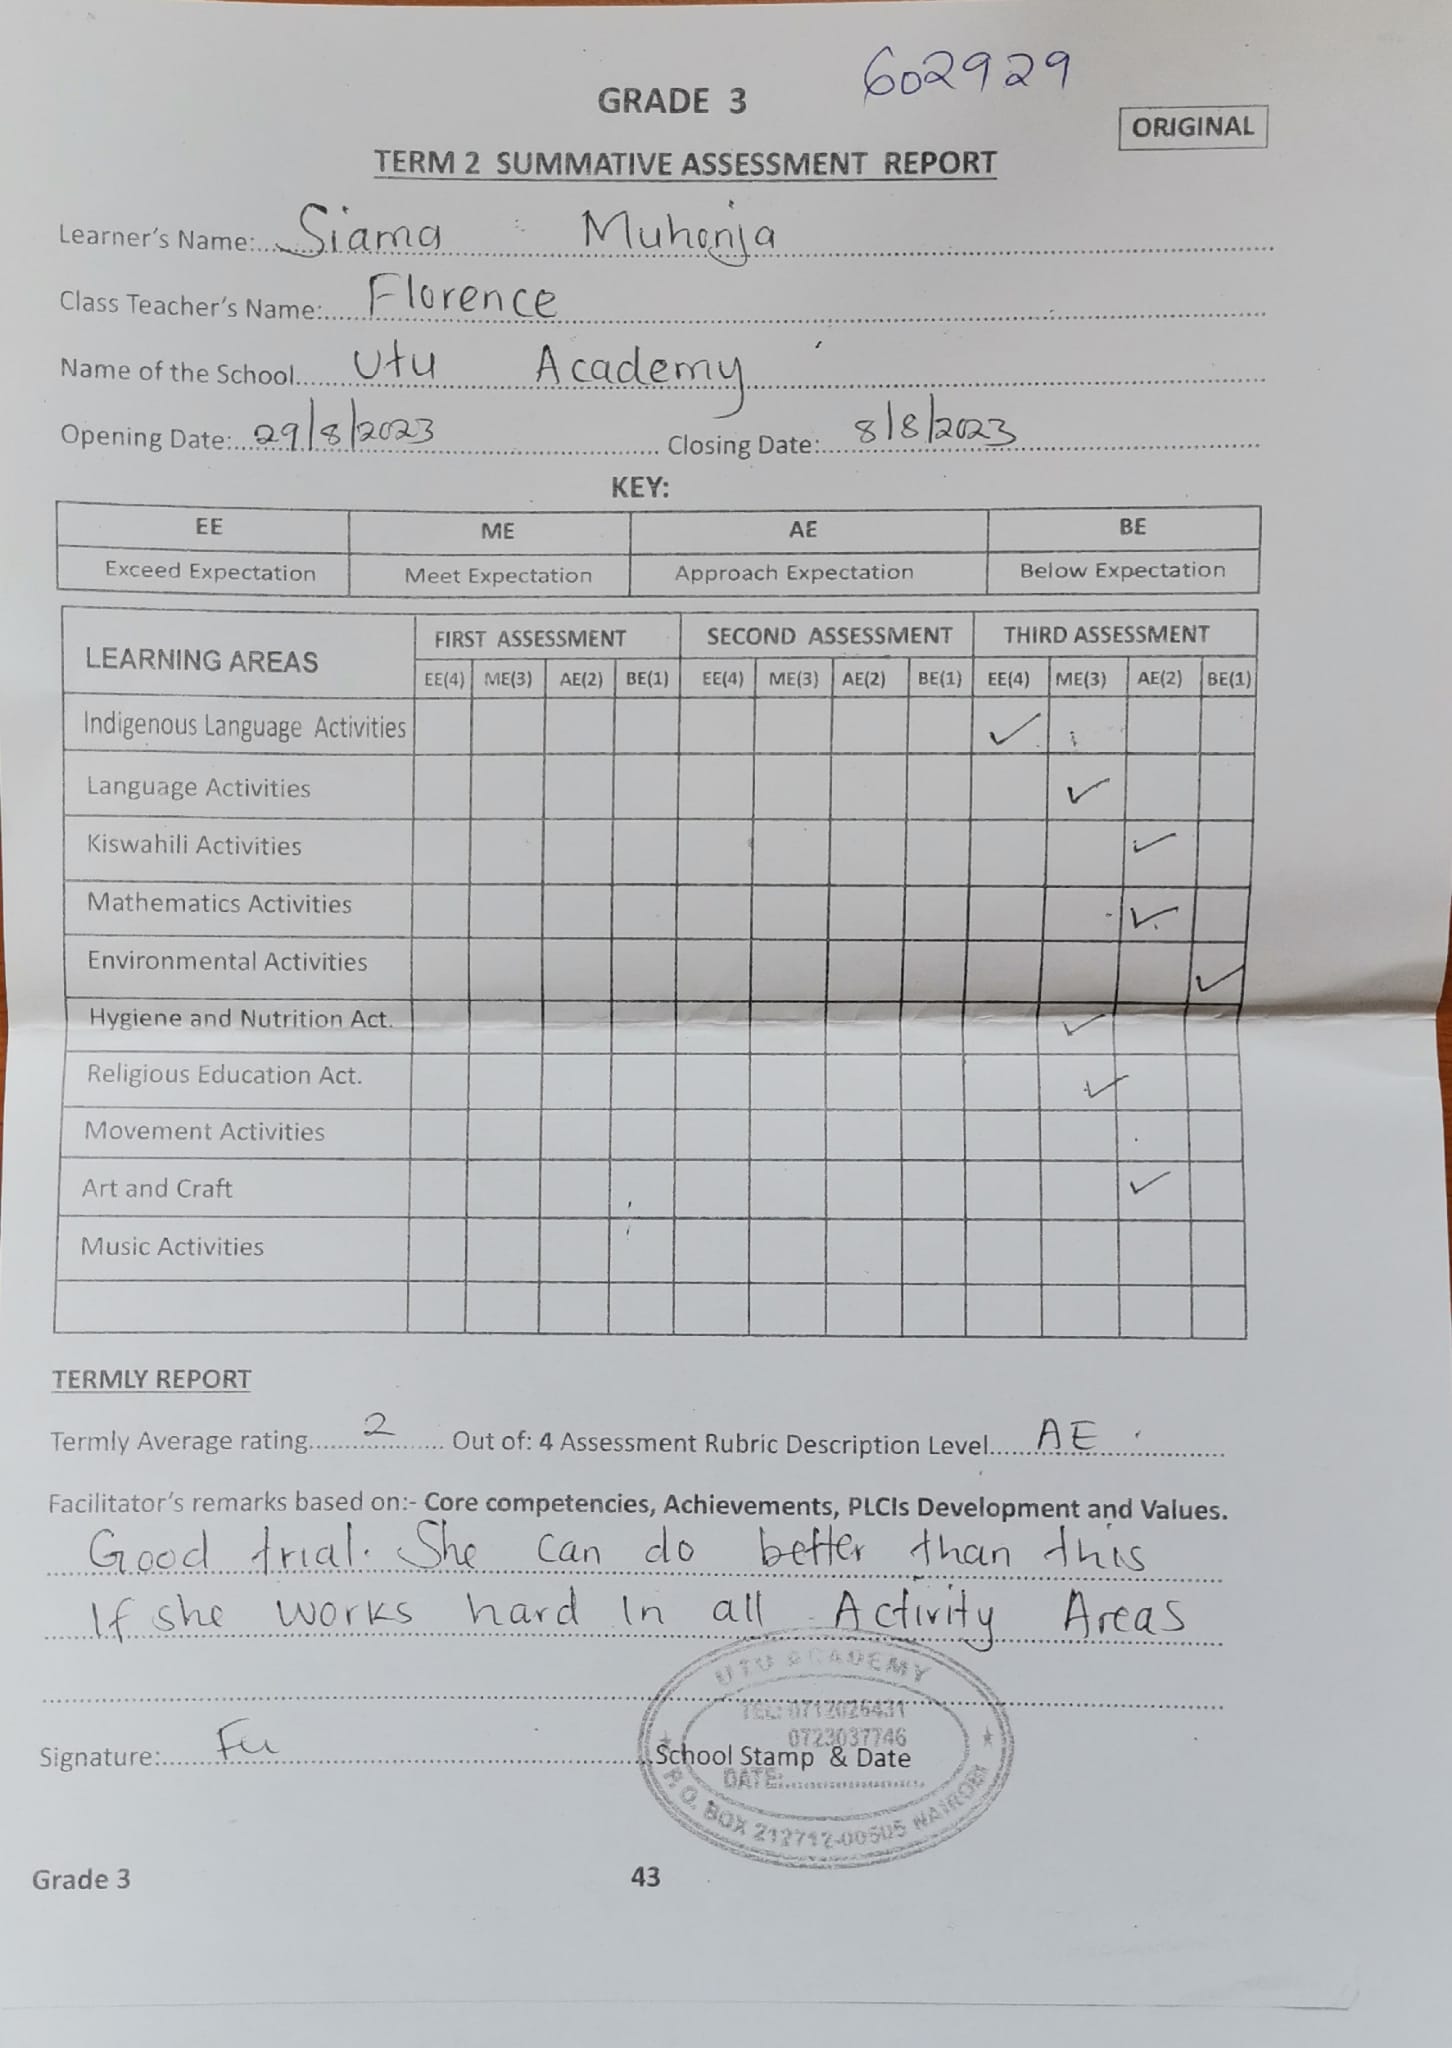 602929
GRADE 3
ORIGINAL
TERM 2 SUMMATIVE ASSESSMENT REPORT
Learner's Name: Siama Muhonja
Class Teacher's Name: Florence
Name of the School Utu Academy
Opening Date: 29/8/2023 Closing Date: 8/8/2023
KEY:
EE ME AE BE
Exceed Expectation Meet Expectation Approach Expectation Below Expectation
LEARNING AREAS FIRST ASSESSMENT SECOND ASSESSMENT THIRD ASSESSMENT
EE(4) ME(3) AE(2) BE(1) EE(4) ME(3) AE(2) BE(1) EE(4) ME(3) AE(2) BE(1)
Indigenous Language Activities ✓
Language Activities ✓
Kiswahili Activities ✓
Mathematics Activities ✓
Environmental Activities ✓
Hygiene and Nutrition Act. ✓
Religious Education Act. ✓
Movement Activities
Art and Craft ✓
Music Activities
TERMLY REPORT
Termly Average rating 2 Out of: 4 Assessment Rubric Description Level AE
Facilitator's remarks based on:- Core competencies, Achievements, PLCIs Development and Values.
Good trial. She can do better than this
If she works hard In all Activity Areas
UTU ACADEMY
TEL: 0712026431
0723037746
Signature: Fu School Stamp & Date
DATE:
P.O. BOX 212712-00505 NAIROBI
Grade 3 43